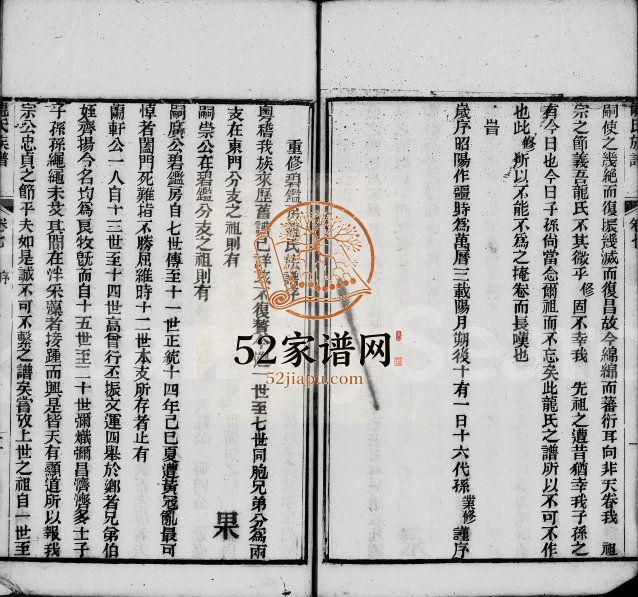 龍氏族譜
嗣使之幾絶而復振幾滅而復昌故今綿綿而蕃衍耳向非天眷我 祖
宗之節義吾龍氏不其微乎 修 固不幸我 先祖之遭昔猶幸我子孫之
有今日也今日子孫尙當念爾祖而不忘矣此龍氏之譜所以不可不作
也此 修 所以不能不爲之掩卷而長嘆也
旹
歲序昭陽作噩時爲萬曆三載陽月朔後十有一日十六代孫 業修 謹序
重修碧鑑房龍氏族譜序
粤稽我族來歷舊譜已詳茲不復贅 一世至七世同胞兄弟分爲兩
支在東門分支之祖則有
嗣崇公在碧鑑分支之祖則有
嗣廣公碧鑑房自七世傳至十一世正統十四年己巳夏遭黃冦亂最可
悼者闔門死難指不勝屈維時十二世本支所存者止有
蘭軒公一人自十三世至十四世高曾行丕振文運四舉於鄉者兄弟伯
姪齊揚今名均爲良牧旣而自十五世至二十世彌熾彌昌濟濟多士子
子孫孫繩繩未艾其間在泮采藻者接踵而興是皆天有顯道所以報我
宗公忠貞之節乎夫如是誠不可不繫之譜矣嘗攷上世之祖自一世至
龍氏族譜
卷七 序
果
52家谱网
52jiapu.com